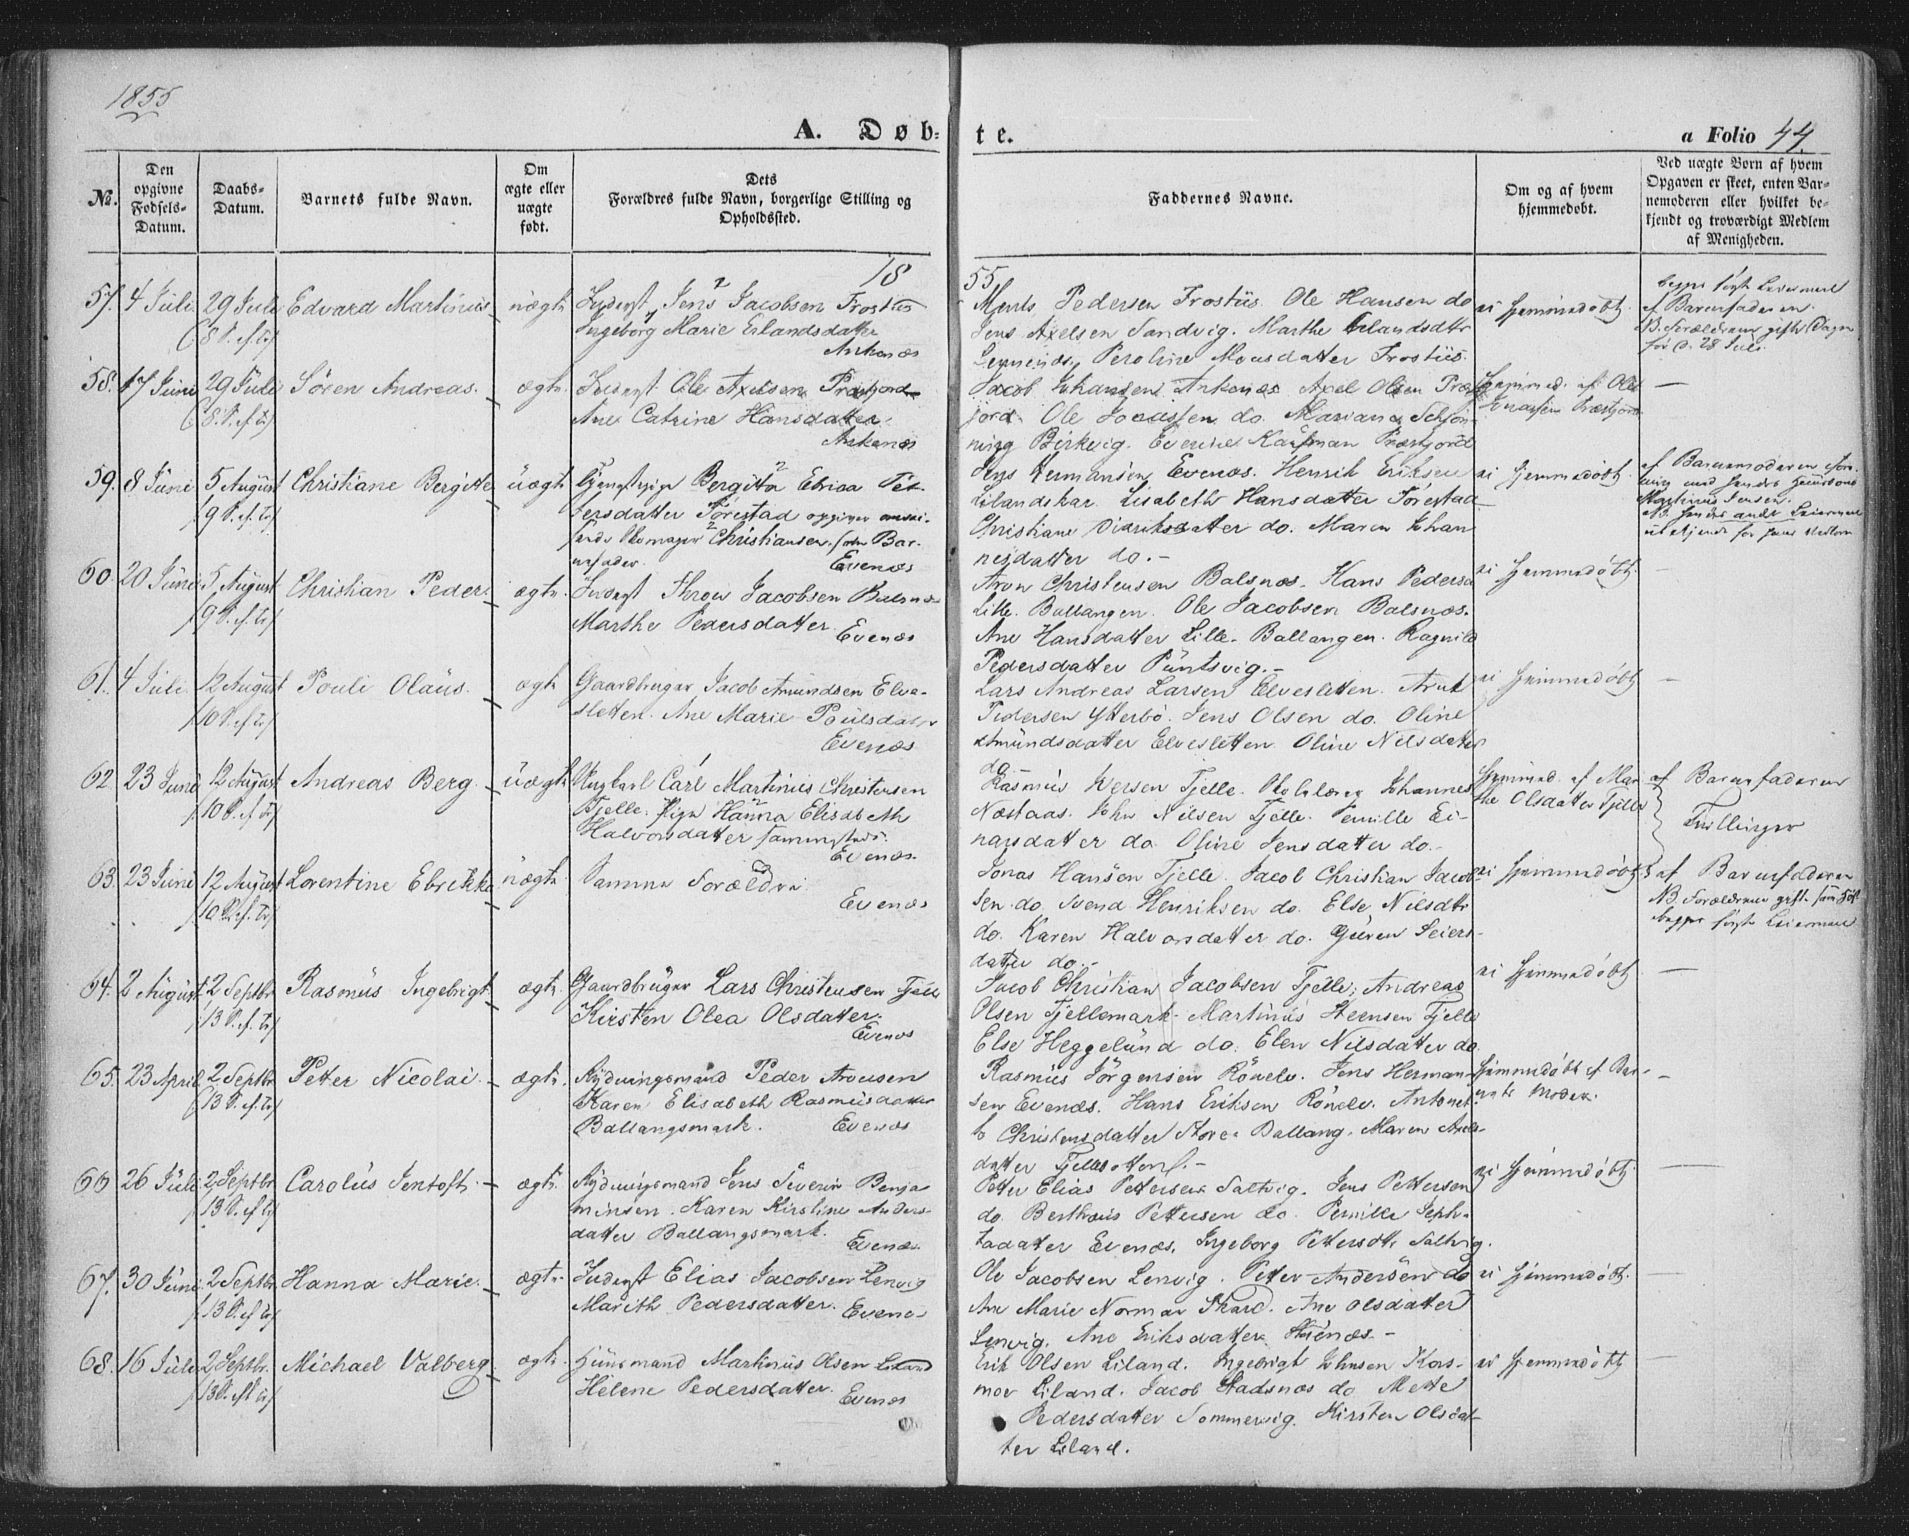 1855
A. Døb-
te.
a Folio 44.
№.
Den
opgivne
Fødsels-
Datum.
Daabs-
Datum.
Barnets fulde Navn.
Om
ægte eller
uægte
født.
Dets
Forældres fulde Navn, borgerlige Stilling og
Opholdssted.
Faddernes Navne.
Om og af hvem
hjemmedøbt.
Ved uægte Børn af hvem
Opgaven er skeet, enten Bar-
nemoderen eller hvilket be-
kjendt og troværdigt Medlem
af Menigheden.
18
55
57. 4 Juli 29 Juli Edvard Martinus uægte
8 S. ef. Tr.
Inderst Jens Jacobsen Frostiis
Ingeborg Marie Erlandsdatter
Ankenæs
Pedersen Frostiis. Ole Hansen do
Jens Axelsen Sandvig. Marthe Erlandsdtr
Peroline Monsdatter Frostiis.
ei hjemmedøbt
begges første Leiermaal
af Barnefaderen.
NB. Forældrene gifte Dagen
før d. 28 Juli
58. 17 Juni 29 Juli Søren Andreas. ægte
8 S. ef. Tr.
Inderst Ole Axelsen Præstjord
Ane Catrine Hansdatter
Ankenæs
Jacob Johansen Ankenæs Axel Olsen Præst-
jord. Ole Jonassen do. Mariana Schjøn-
ning Birkvig. Everine Kaufman Præstjord
Hjemmed. af Ole
Jonassen Præstjord
—
59. 8 Juni 5 August Christiane Bergitte uægte
9 S. ef. Tr.
Tjenestepige Bergitta Ebrica Pet-
tersdatter Førestad opgiver omrei-
sende Skomager Christiansen som Bar-
nefader.
Evenæs
Jens Hermansen Evenæs. Henrik Eriksen
Lilandskar. Lisabeth Hansdatter Førestad
Christiane Didriksdatter do. Maren Johan
nesdatter do.-
ei hjemmedøbt
af Barnemoderen
Martinus Jensen.
NB. hendes andet Leiermaal
60. 20 Juni 5 August Christian Peder. ægte.
9 S. ef. Tr.
Inderst Aron Jacobsen Balsnæs
Marthe Pedersdatter.
Evenæs
Aron Christensen Balsnæs. Hans Pedersen
Lille Ballangen. Ole Jacobsen Balsnæs.
Ane Hansdatter Lille-Ballangen. Ragnild
Pedersdatter Püntsvig.-
ei hjemmedøbt.
—
61. 4 Juli 12 August Pouli Olaüs. ægte
10 S. ef. Tr.
Gaardbruger Jacob Amundsen Elve-
sletten. Ane Marie Poülsdatter
Evenæs
Lars Andreas Larsen Elvesletten. Arnt
Pedersen Ytterbö. Jens Olsen do. Oline
Amündsdatter Elvesletten. Oline Nilsdatter
do.
ei hjemmedøbt
—
62. 23 Juni 12 August Andreas Berg. uægte
10 S. ef. Tr.
Ungkarl Carl Martinus Christensen
Tjelle. Pige Hanna Elisabeth
Halvorsdatter sammesteds.
Evenæs.
Rasmus Iversen Tjelle. Skolelærer Johannes
Næstaas. John Nilsen Tjelle. Pernille Ei-
narsdatter do. Oline Jensdatter do.-
Hjemmed. af Mar-
the Olsdatter Tjelle
af Barnefaderen
Tvillinger
63. 23 Juni 12 August Lorentine Ebrikke uægte
10 S. ef. Tr.
Samme Forældre
Evenæs
Jonas Hansen Tjelle. Jacob Christian Jacob-
sen do. Svend Henriksen do. Else Nilsdtr
do. Karen Halvorsdatter do. Guren Seiers-
datter do.-
ei hjemmedøbt
af Barnefaderen
NB. Forældrene gifte
begges første Leiermaal
64. 2 August 2 Septbr Rasmüs Ingebrigt. ægte
13 S. ef. Tr.
Gaardbruger Lars Christensen Tjelle
Kirsten Olea Olsdatter.
Evenæs
Jacob Christian Jacobsen Tjelle; Andreas
Olsen Tjellemark. Martinüs Steensen Tjelle
Else Heggelünd do. Elen Nilsdatter do
ei hjemmedøbt
—
65. 23 April 2 Septbr Petter Nicolai. ægte.
13 S. ef. Tr.
Rydningsmand Peder Aronsen
Karen Elisabeth Rasmüsdatter
Ballangsmark.
Evenæs
Rasmüs Jörgensen Rönelv. Jens Herman-
sen Evenæs. Hans Eriksen Rönelv. Antonet-
te Christensdatter Store Ballang. Maren Axels-
datter Tjellesletten.-
Hjemmedøbt af Bar-
nets Moder.
—
66 26 Juli 2 Septbr Carolüs Jentoft. ægte.
13 S. ef. Tr.
Rydningsmand Jens Severin Benja
minsen. Karen Kirstine Anders-
datter Ballangsmark.
Evenæs
Petter Elias Pettersen Saltvig. Jens Pettersen
do. Bertheus Pettersen do. Pernille Seph-
tadatter Evenæs. Ingeborg Pettersdtr. Saltvig.
ei hjemmedøbt.
—
67. 30 Juni 2 Septbr Hanna Marie. ægte.
13 S. ef. Tr.
Inderst Elias Jacobsen Lenvig
Marith Pedersdatter.
Evenæs
Ole Jacobsen Lenvig. Petter Andersen do
Ane Marie Normar Skard. Ane Olsdatter
Lenvig. Ane Eriksdatter Stünæs.-
ei hjemmedøbt.
—
68. 16 Juli 2 Septbr. Michael Valberg ægte.
13 S. ef. Tr.
Huusmand Martinüs Olsen Liland
Helene Pedersdatter.
Evenæs
Erik Olsen Liland. Ingebrigt Johnsen Kors-
moe Liland. Jacob Stadsnæs do Mette
Pedersdatter Sommervig. Kirsten Olsdat-
ter Liland.
ei hjemmedøbt
—